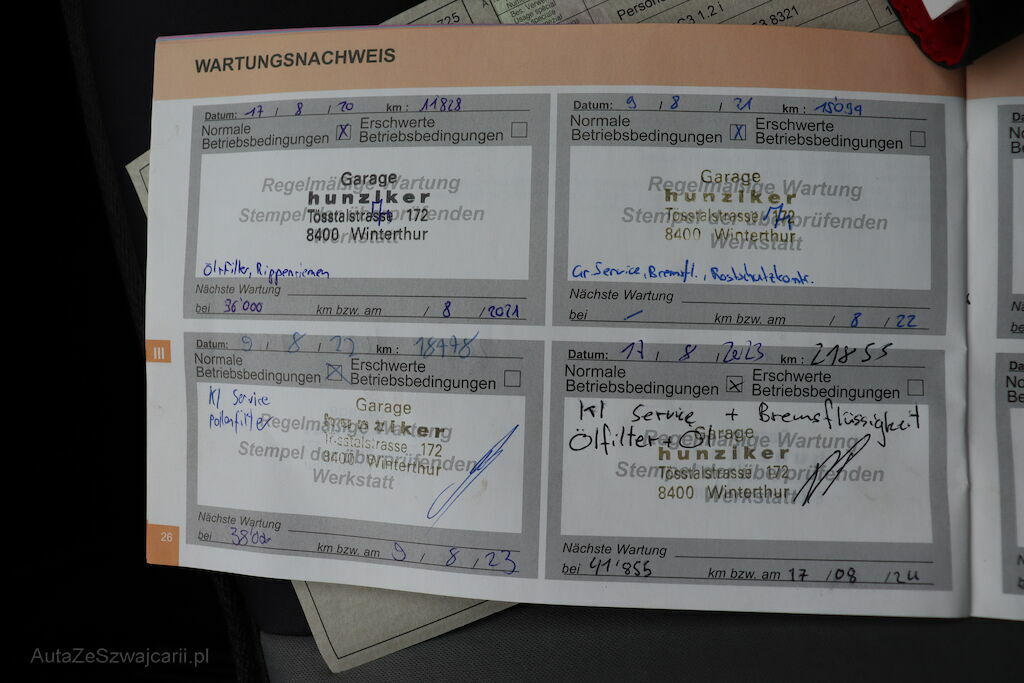 725
Bes. Verwen
Usage spécial
Uso speciale
Person
C3 1.2 i
53 8321
WARTUNGSNACHWEIS
Datum: 17 / 8 / 20 km : 11'828
Normale Betriebsbedingungen X Erschwerte Betriebsbedingungen
Regelmäßige Wartung
Stempel der überprüfenden
Werkstatt
Garage
hunziker
Tösstalstrasse 172
8400 Winterthur
Ölfilter, Rippenriemen
Nächste Wartung
bei 36'000 km bzw. am / 8 / 2021
Datum: 9 / 8 / 21 km : 15'094
Normale Betriebsbedingungen X Erschwerte Betriebsbedingungen
Regelmäßige Wartung
Stempel der überprüfenden
Werkstatt
Garage
hunziker
Tösstalstrasse 172
8400 Winterthur
Gr Service, Bremsfl., Rostschutzkontr.
Nächste Wartung
bei - km bzw. am / 8 / 22
Datum: 9 / 8 / 22 km : 18478
Normale Betriebsbedingungen X Erschwerte Betriebsbedingungen
Kl Service
Pollenfilter
Regelmäßige Wartung
Stempel der überprüfenden
Werkstatt
Garage
hunziker
Tösstalstrasse 172
8400 Winterthur
Nächste Wartung
bei km bzw. am 9 / 8 / 23
Datum: 17 / 8 / 2023 km : 21855
Normale Betriebsbedingungen X Erschwerte Betriebsbedingungen
Kl Service + Bremsflüssigkeit
Ölfilter + Öl
Regelmäßige Wartung
Stempel der überprüfenden
Werkstatt
Garage
hunziker
Tösstalstrasse 172
8400 Winterthur
Nächste Wartung
bei 41'855 km bzw. am 17 / 08 / 24
III
26
AutaZeSzwajcarii.pl